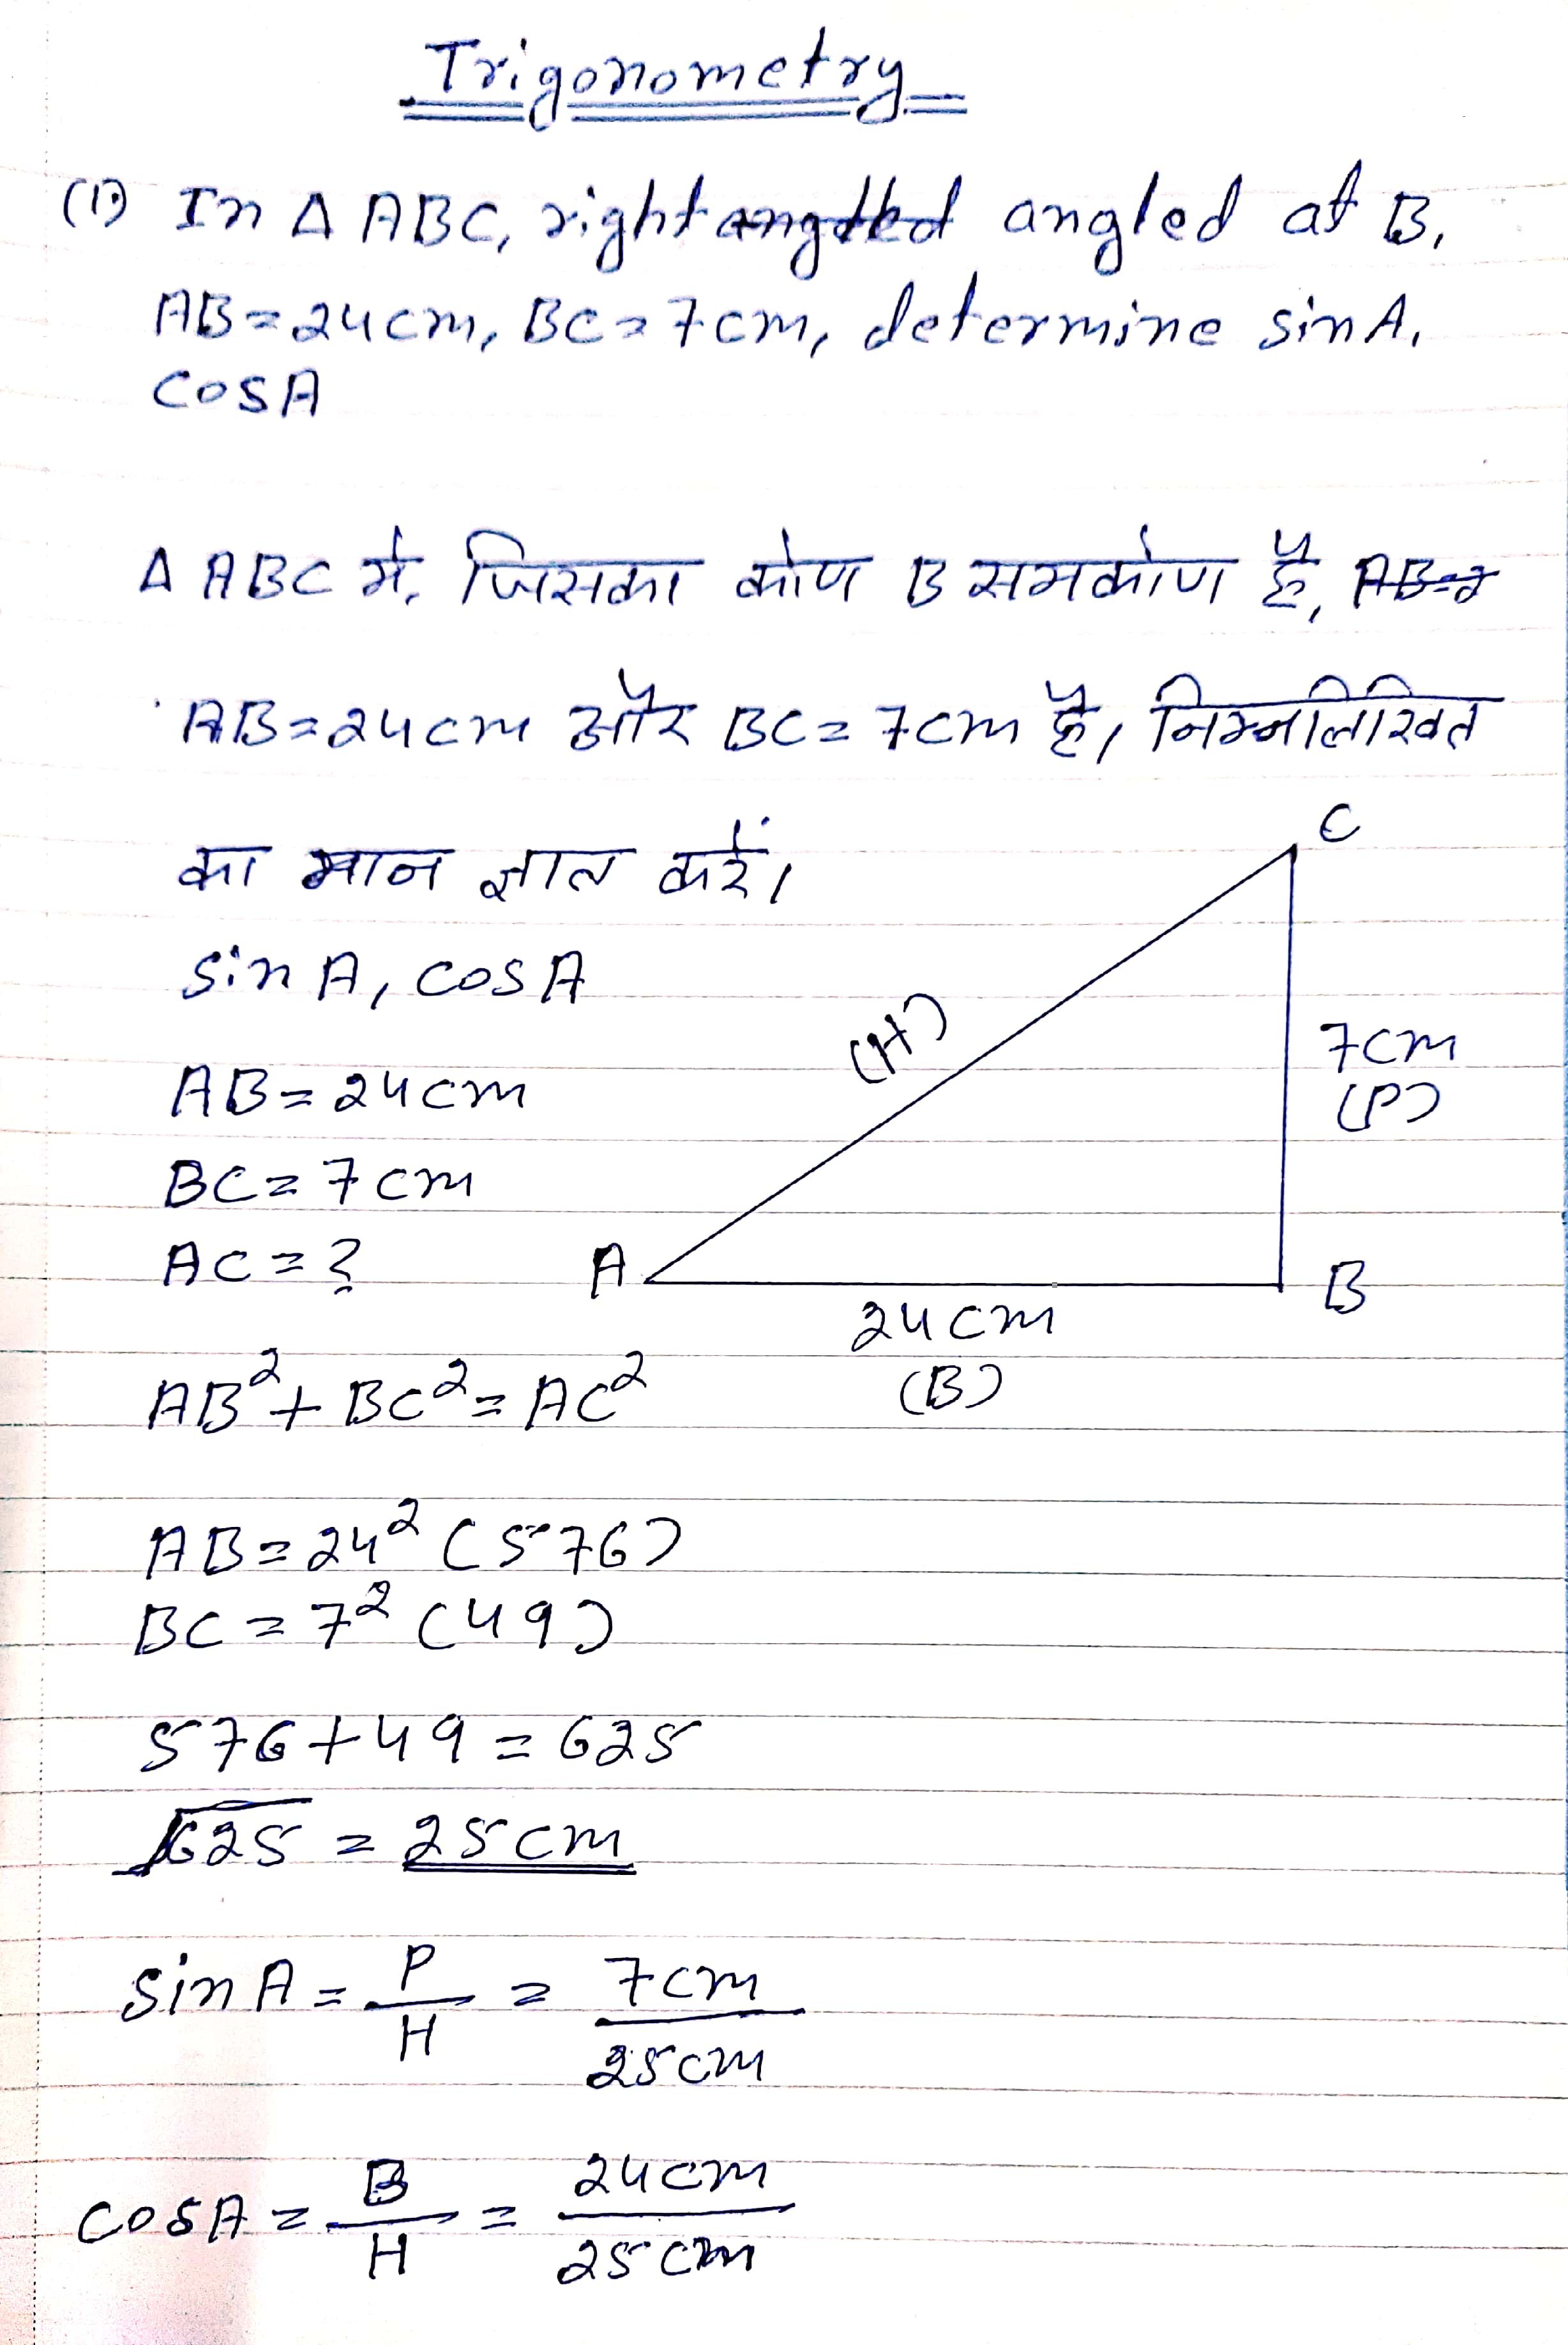 Trigonometry
(1) In Δ ABC, right angled at B,
AB = 24cm, BC = 7cm, determine sin A,
COSA
Δ ABC मे, जिसका कोण B समकोण है, AB=2
AB = 24cm और BC = 7cm है, निम्नलिखित
का मान ज्ञात करें।
C
sin A, COSA
(H)
7cm
(P)
AB = 24cm
BC = 7cm
AC = ?
A
B
24cm
(B)
AB² + BC² = AC²
AB = 24² (576)
BC = 7² (49)
576 + 49 = 625
√625 = 25cm
sin A = P/H = 7cm/25cm
COSA = B/H = 24cm/25cm